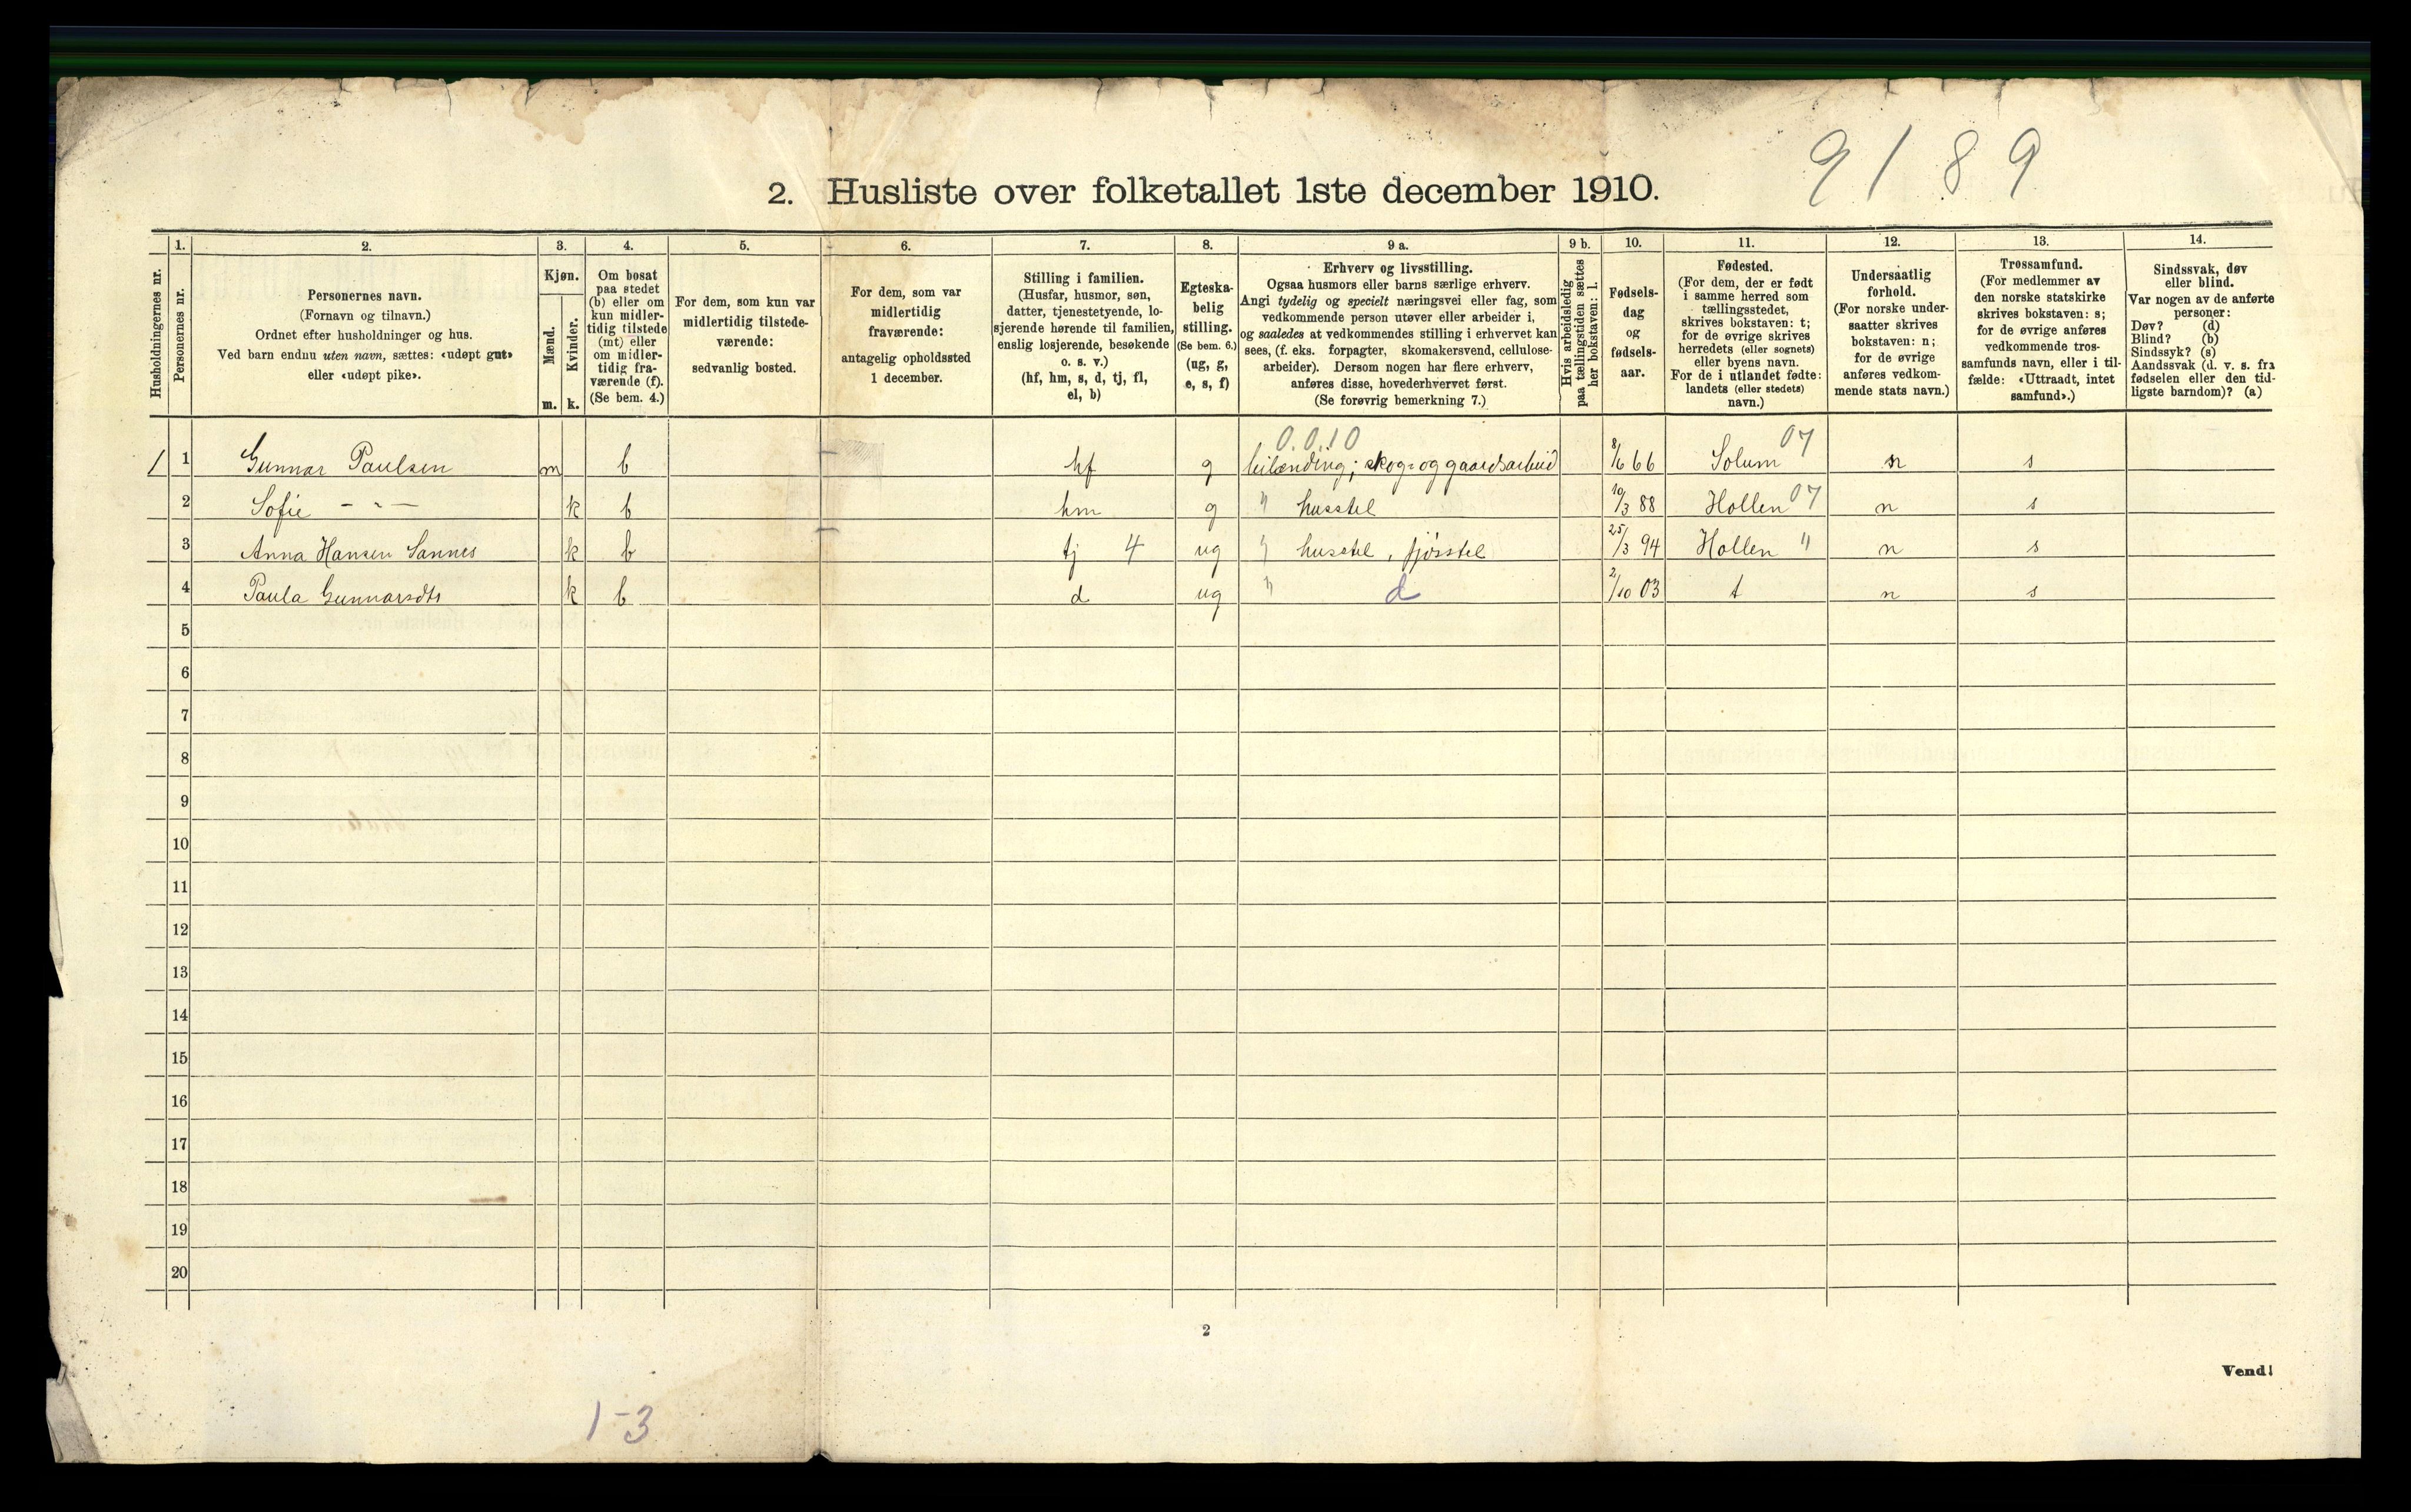 9189
2. Husliste over folketallet 1ste december 1910.
Husholdningernes nr.
1.
Personernes nr.
2.
Personernes navn.
(Fornavn og tilnavn.)
Ordnet efter husholdninger og hus.
Ved barn endnu uten navn, sættes: «udøpt gut»
eller «udøpt pike».
3.
Kjøn.
Mænd.
Kvinder.
m. k.
4.
Om bosat
paa stedet
(b) eller om
kun midler-
tidig tilstede
(mt) eller
om midler-
tidig fra-
værende (f).
(Se bem. 4.)
5.
For dem, som kun var
midlertidig tilstede-
værende:
sedvanlig bosted.
6.
For dem, som var
midlertidig
fraværende:
antagelig opholdssted
1 december.
7.
Stilling i familien.
(Husfar, husmor, søn,
datter, tjenestetyende, lo-
sjerende hørende til familien,
enslig losjerende, besøkende
o. s. v.)
(hf, hm, s, d, tj, fl,
el, b)
8.
Egteska-
belig
stilling.
(Se bem. 6.)
(ug, g,
e, s, f)
9 a.
Erhverv og livsstilling.
Ogsaa husmors eller barns særlige erhverv.
Angi tydelig og specielt næringsvei eller fag, som
vedkommende person utøver eller arbeider i,
og saaledes at vedkommendes stilling i erhvervet kan
sees, (f. eks. forpagter, skomakersvend, cellulose-
arbeider). Dersom nogen har flere erhverv,
anføres disse, hovederhvervet først.
(Se forøvrig bemerkning 7.)
9 b.
Hvis arbeidsledig
paa tællingstiden sættes
her bokstaven: l.
10.
Fødsels-
dag
og
fødsels-
aar.
11.
Fødested.
(For dem, der er født
i samme herred som
tællingsstedet,
skrives bokstaven: t;
for de øvrige skrives
herredets (eller sognets)
eller byens navn.
For de i utlandet fødte:
landets (eller stedets)
navn.)
12.
Undersaatlig
forhold.
(For norske under-
saatter skrives
bokstaven: n;
for de øvrige
anføres vedkom-
mende stats navn.)
13.
Trossamfund.
(For medlemmer av
den norske statskirke
skrives bokstaven: s;
for de øvrige anføres
vedkommende tros-
samfunds navn, eller i til-
fælde: «Uttraadt, intet
samfund».)
14.
Sindssvak, døv
eller blind.
Var nogen av de anførte
personer:
Døv? (d)
Blind? (b)
Sindssyk? (s)
Aandssvak (d. v. s. fra
fødselen eller den tid-
ligste barndom)? (a)
0.0.10 07
1 1 Gunnar Paulsen m b hf g leilænding; skog- og gaardsarbeid 8/6 66 Solum n s
2 Sofie - " - k b hm g " husstel 10/3 88 Hollen 07 n s
3 Anna Hansen Sannes k b tj 4 ug " husstel, fjøsstel 25/3 94 Hollen " n s
4 Paula Gunnarsdtr k b d ug " d 2/10 03 t n s
5
6
7
8
9
10
11
12
13
14
15
16
17
18
19
20
2
Vend!
1-3